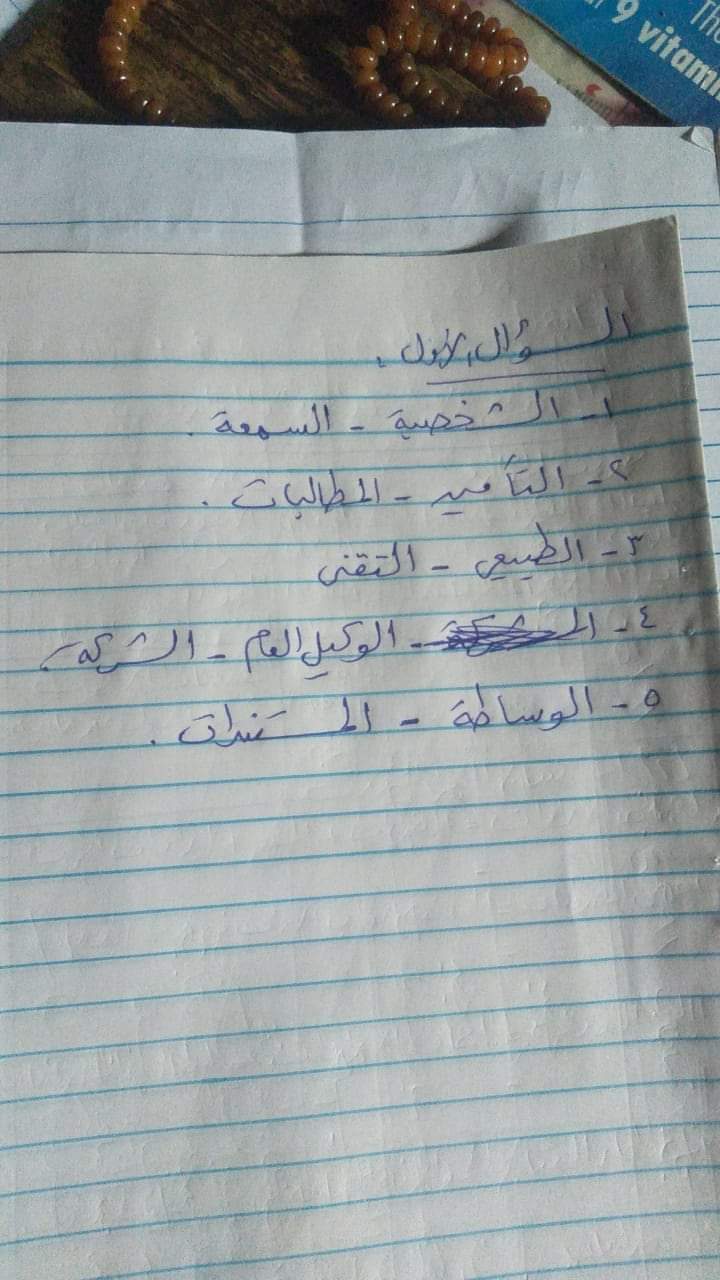 THE
9 vitami
السؤال الأول
١- الشخصية - السمعة .
٢- التأمين - المطالبات .
٣- الطبيعي - التقني
٤- الوكيل العام - الشركة .
٥- الوساطة - المستندات .